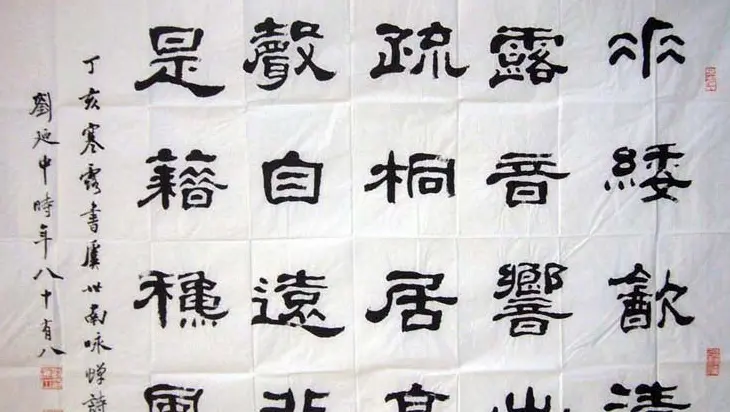 𠂹緌㱃清
露音響出
疏桐居高
聲自遠非
是藉穐風
丁亥寒露書虞世南咏蟬詩
劉延中時年八十有八